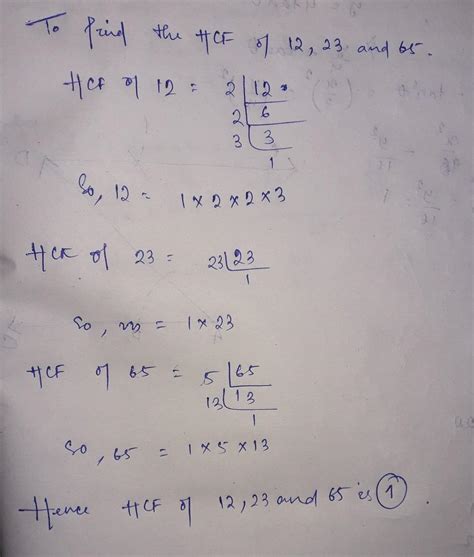 To find the HCF of 12, 23 and 65.
HCF of 12 = 2 | 12
2 | 6
3 | 3
1
So, 12 = 1 × 2 × 2 × 3
HCF of 23 = 23 | 23
1
So, = 1 × 23
HCF of 65 = 5 | 65
13 | 13
1
So, 65 = 1 × 5 × 13
Hence HCF of 12, 23 and 65 is 1.